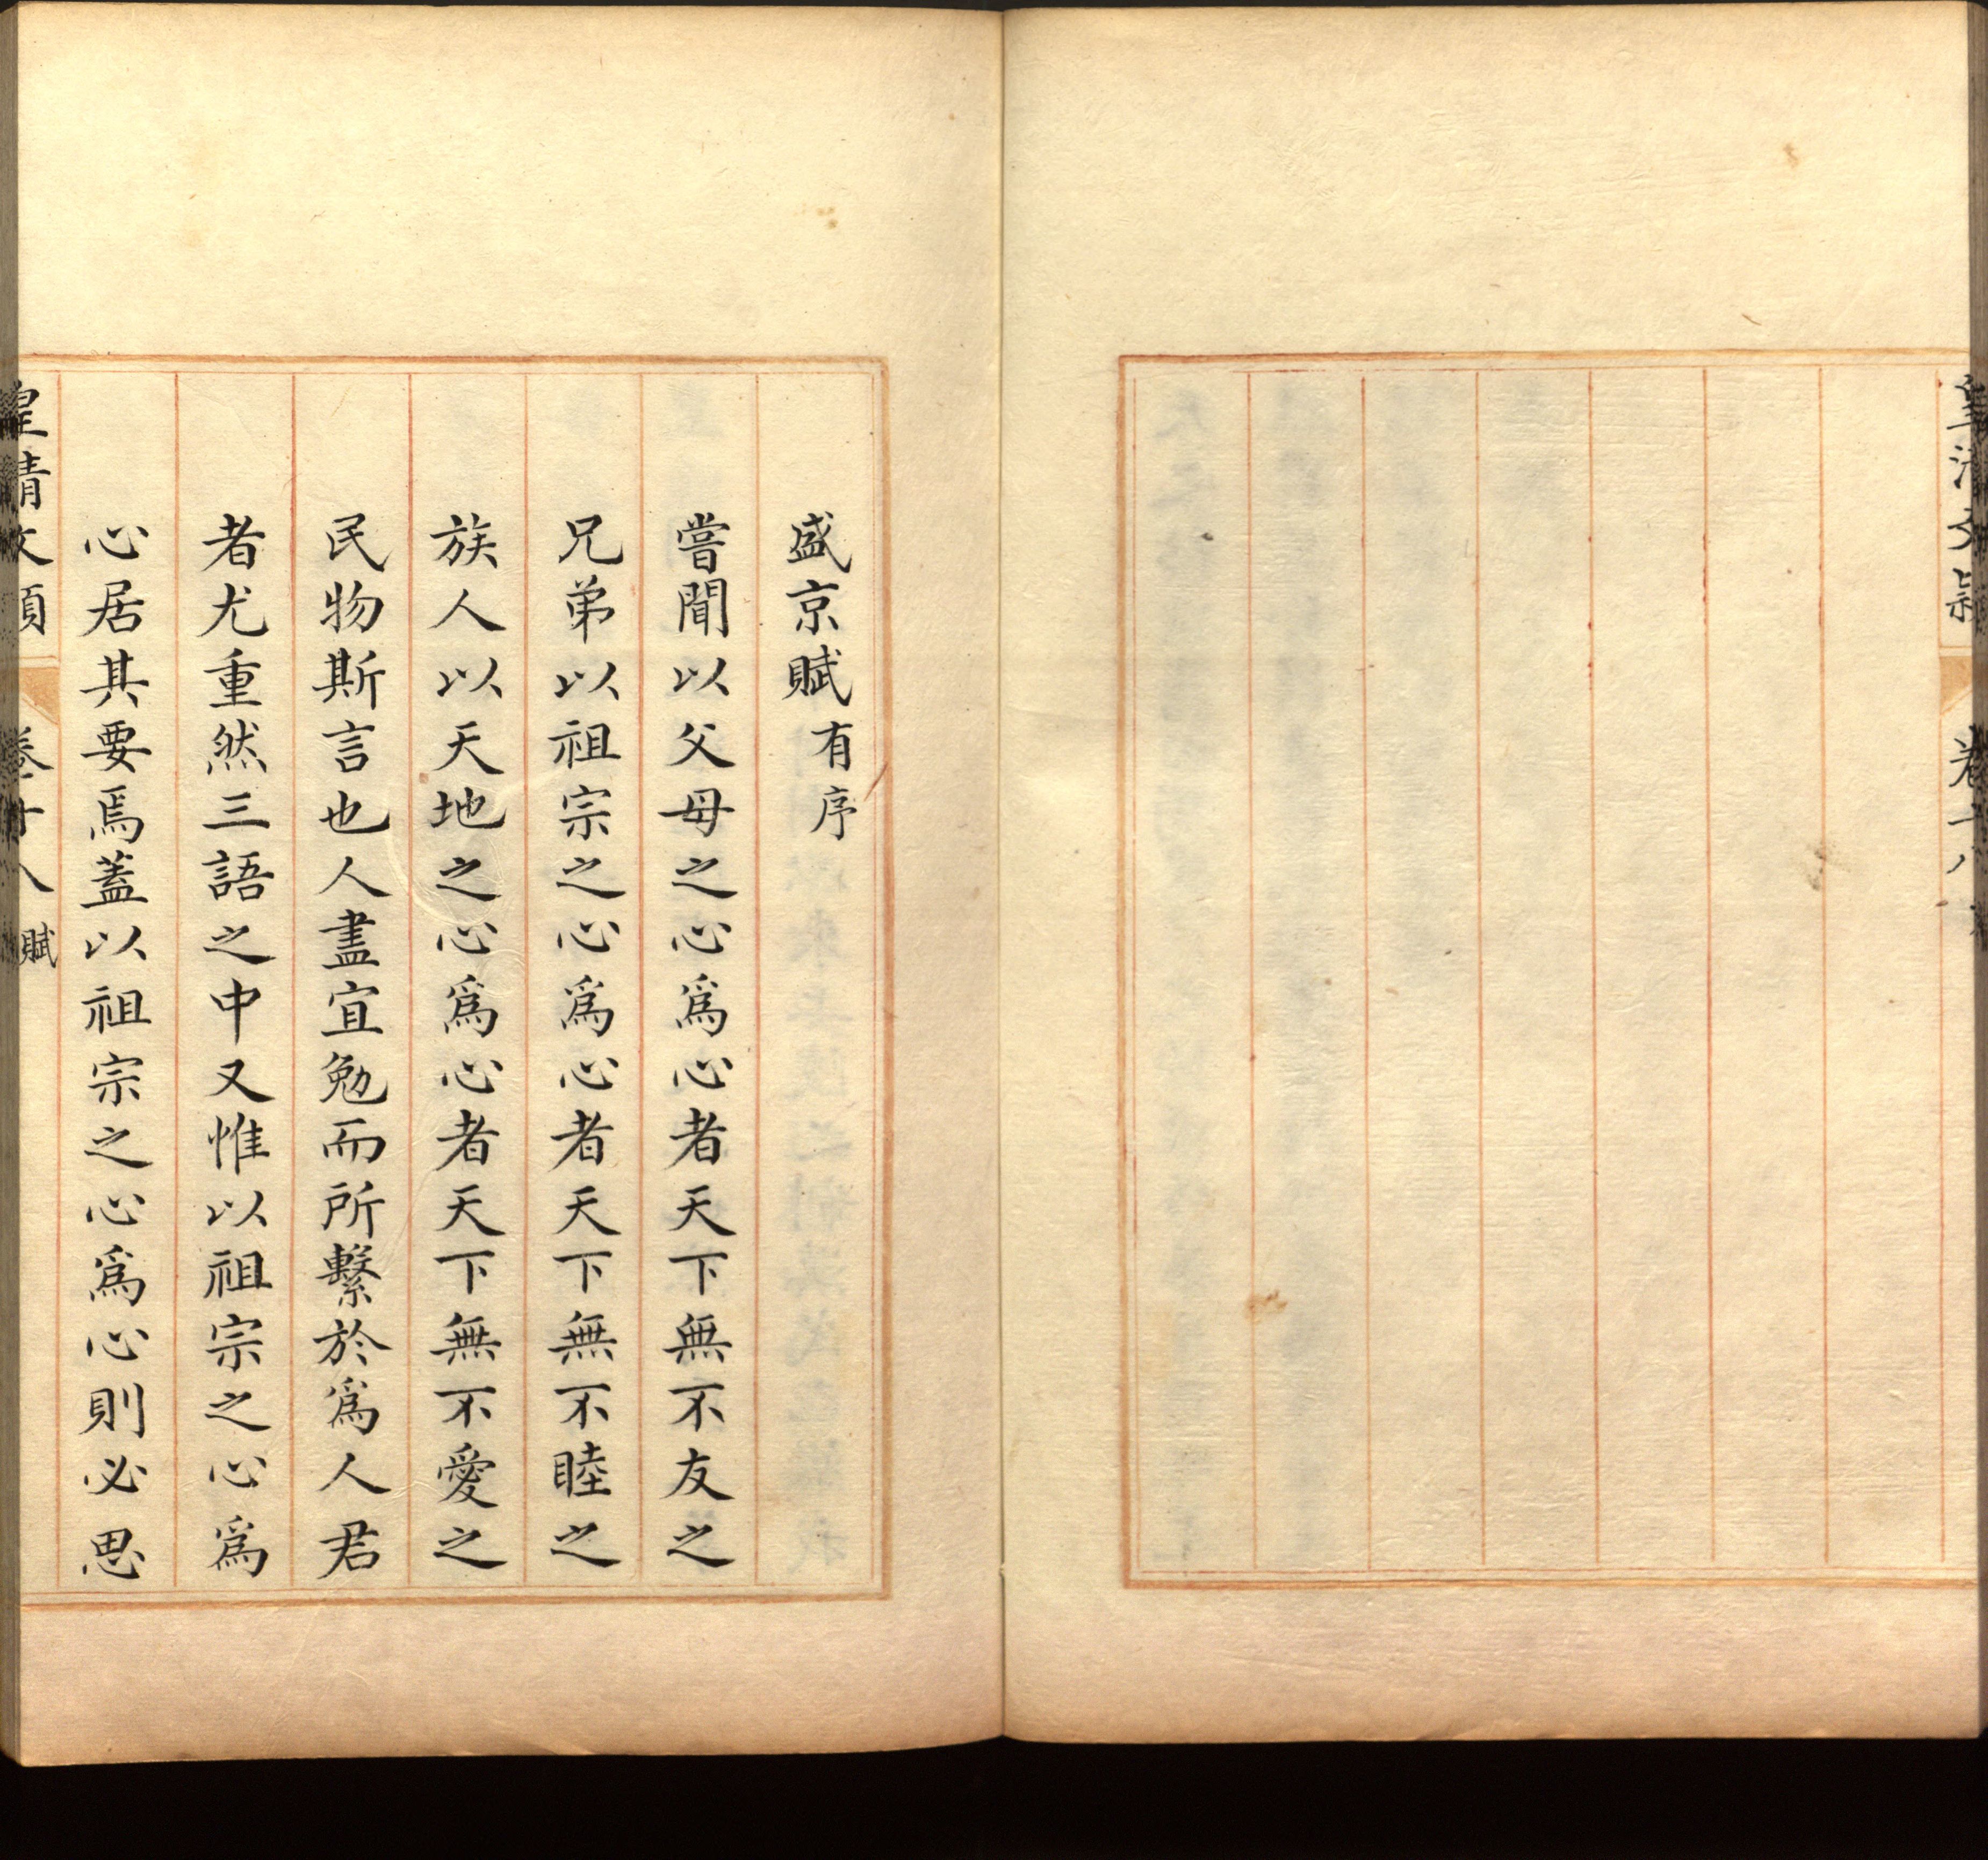 盛京賦有序
嘗聞以父母之心爲心者天下無不友之
兄弟以祖宗之心爲心者天下無不睦之
族人以天地之心爲心者天下無不愛之
民物斯言也人盡宜勉而所繫於爲人君
者尤重然三語之中又惟以祖宗之心爲
心居其要焉蓋以祖宗之心爲心則必思
皇清文穎 卷十八 賦